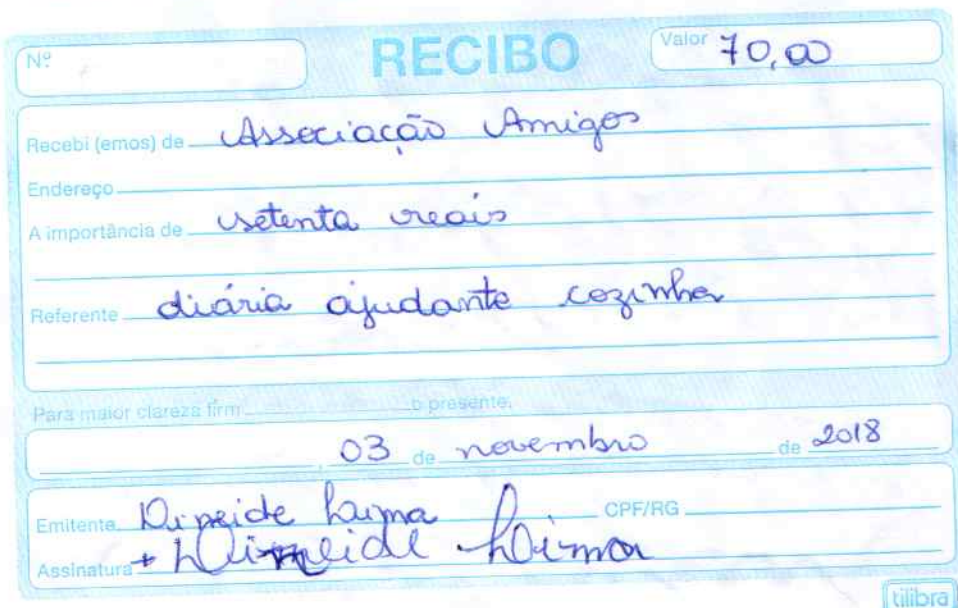 Nº RECIBO Valor 70,00
Recebi (emos) de Associação Amigos
Endereço
A importância de setenta reais
Referente diária ajudante cozinha
Para maior clareza firm o presente.
, 03 de novembro de 2018
Emitente Dineide Lima CPF/RG
Assinatura + Dineide Lima
tilibra